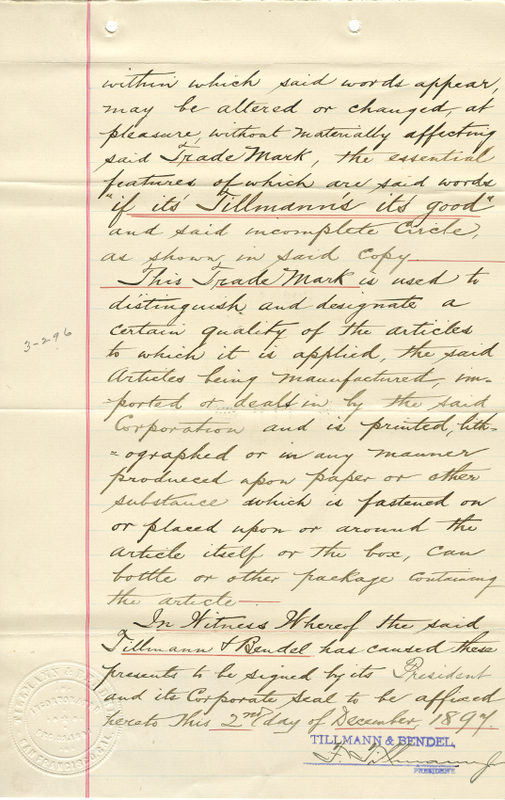 within which said words appear,
may be altered or changed, at
pleasure, without materially affecting
said Trade Mark, the essential
features of which are said words
"if it's Tillmann's it's good"
and said incomplete Circle,
as shown in said Copy
This Trade Mark is used to
distinguish and designate a
certain quality of the articles
to which it is applied, the said
Articles being manufactured, im-
-ported or dealt in by the said
Corporation and is printed, lith-
=ographed or in any manner
produced upon paper or other
substance which is fastened on
or placed upon or around the
article itself or the box, can
bottle or other package containing
the article
In Witness Whereof the said
Tillmann & Bendel has caused these
presents to be signed by its President
and its Corporate seal to be affixed
hereto this 2nd day of December, 1897.
3-296
TILLMANN & BENDEL
SAN FRANCISCO
TILLMANN & BENDEL,
F. Tillmann Jr
PRESIDENT.